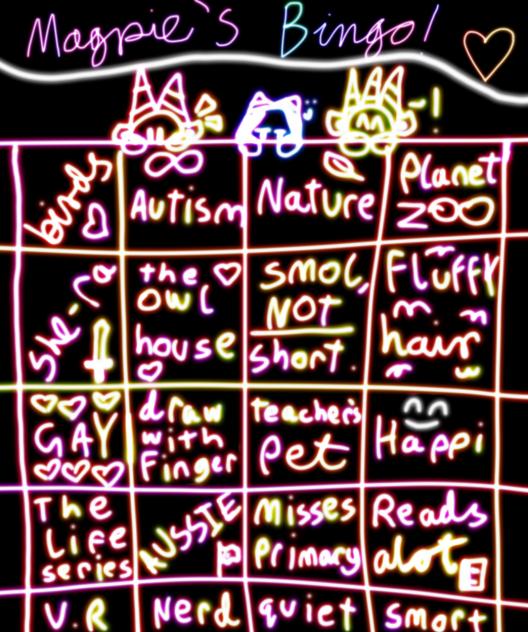 Magpie's Bingo!
birds
Autism
Nature
Planet
ZOO
She-ra
the
OWL
house
smol,
NOT
short.
FLUFFY
hair
GAY
draw
with
Finger
teacher's
Pet
Happi
The
Life
series
AUSSIE
Misses
Primary
Reads
alot
E
V.R
Nerd
quiet
smort